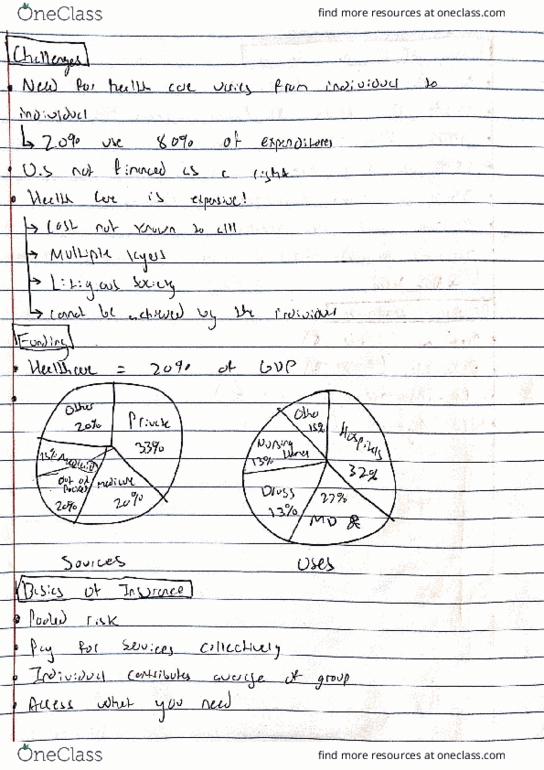 OneClass
find more resources at oneclass.com
Challenges
Need for health care varies from individual to
individual
↳ 20% use 80% of expenditures
U.S not financed as a right
Health care is expensive!
→ Cost not known to all
→ Multiple layers
→ Litigous Society
→ cannot be achieved by the individual
Funding
Healthcare = 20% of GDP
Other
20%
Private
33%
15% Medicaid
out of
pocket
20%
medicare
20%
Other
15%
Hospitals
32%
Nursing
Homes
13%
Drugs
13%
27%
MD &
Sources
Uses
Basics of Insurance
Pooled risk
Pay for services collectively
Individual contributes average of group
Access what you need
OneClass
find more resources at oneclass.com